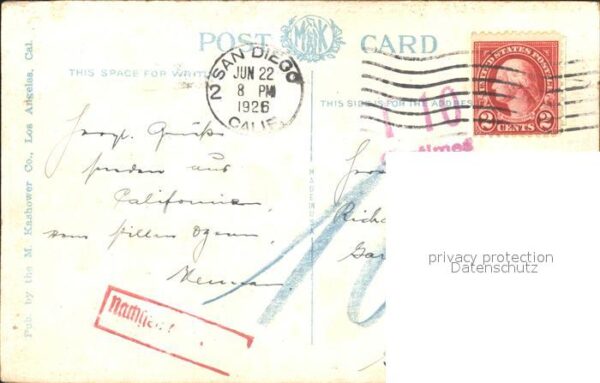 POST CARD
THIS SPACE FOR WRIT
SAN DIEGO
CALIF.
2
JUN 22
8 PM
1926
THIS SIDE IS FOR THE ADDRESS
UNITED STATES POSTAGE
2 CENTS 2
T 10
Herzl. Grüße
senden aus
Californien,
vom stillen Ozean,
Pub. by the M. Kashower Co., Los Angeles, Cal.
MADE IN U.S.A.
privacy protection
Datenschutz